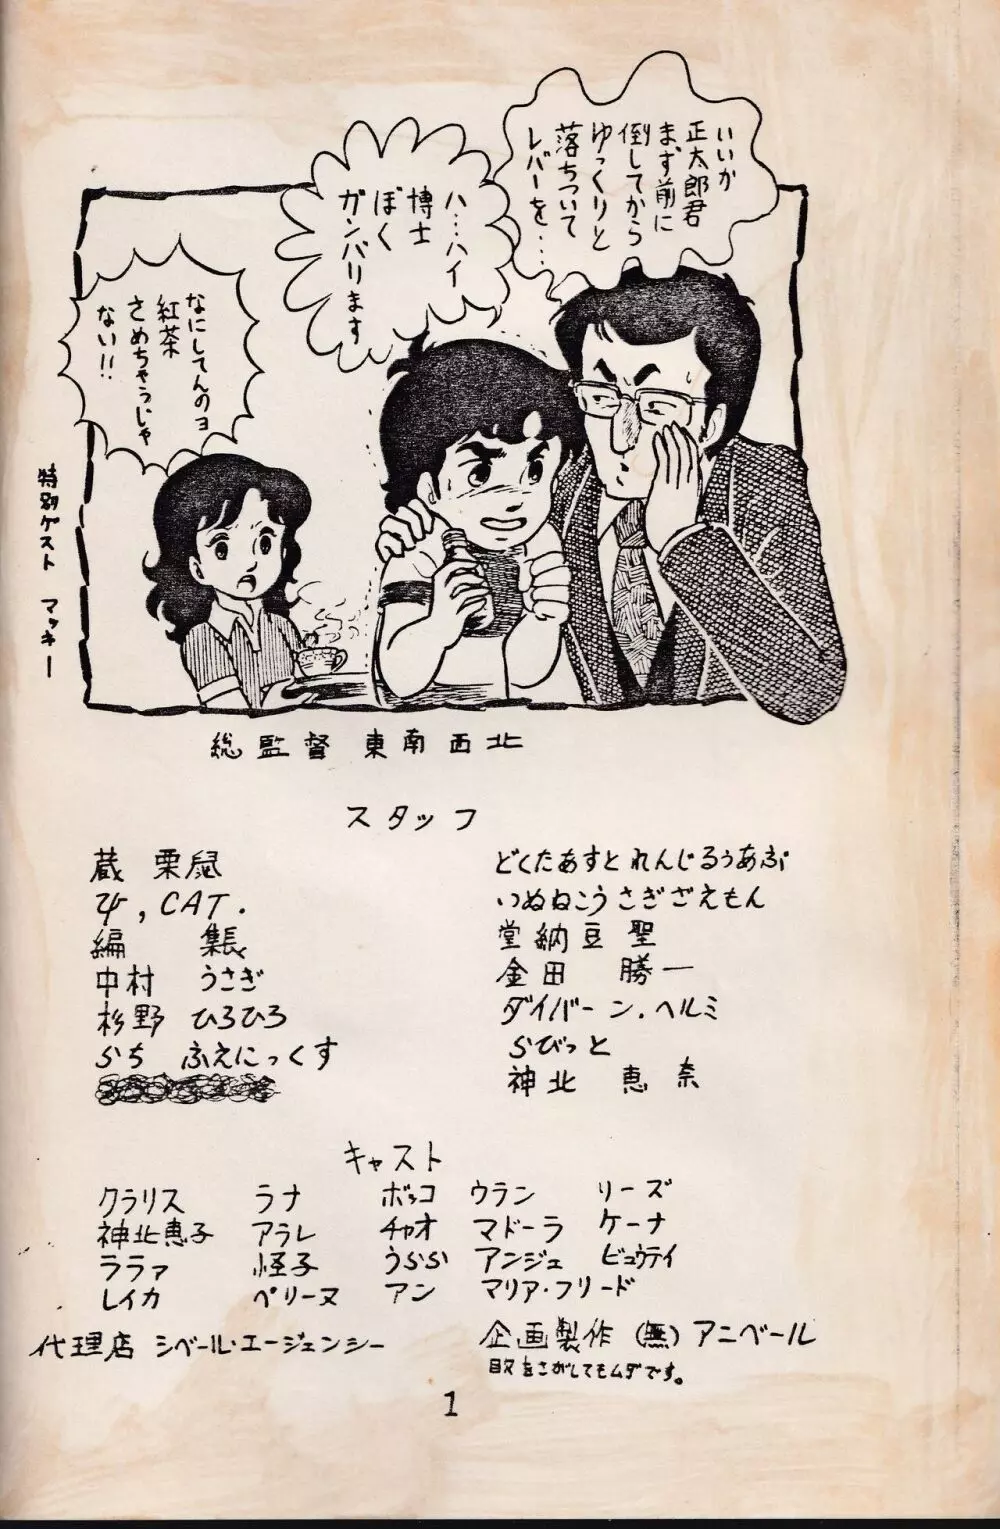 いいか
正太郎君
まず前に
倒してから
ゆっくりと
落ちついて
レバーを‥‥
ハ…ハイ
博士
ぼく
ガンバリます
なにしてんのョ
紅茶
さめちゃうじゃ
ない!!
特別ゲスト マッキー
総監督 東南西北
スタッフ
蔵 栗鼠
どくたあすとれんじるぅあぶ
, CAT.
いぬねこうさぎざえもん
編 集長
堂納豆 聖
中村 うさぎ
金田 勝一
杉野 ひろひろ
ダイバーン・ヘルミ
らち ふえにっくす
らびっと
神北 恵奈
キャスト
クラリス ラナ ボッコ ウラン リーズ
神北恵子 アラレ チャオ マドーラ ケーナ
ララァ 怪子 うらら アンジェ ビュウティ
レイカ ペリーヌ アン マリア・フリード
代理店 シベール・エージェンシー
企画製作 (無)アニベール
をさがしてもムダです。
1